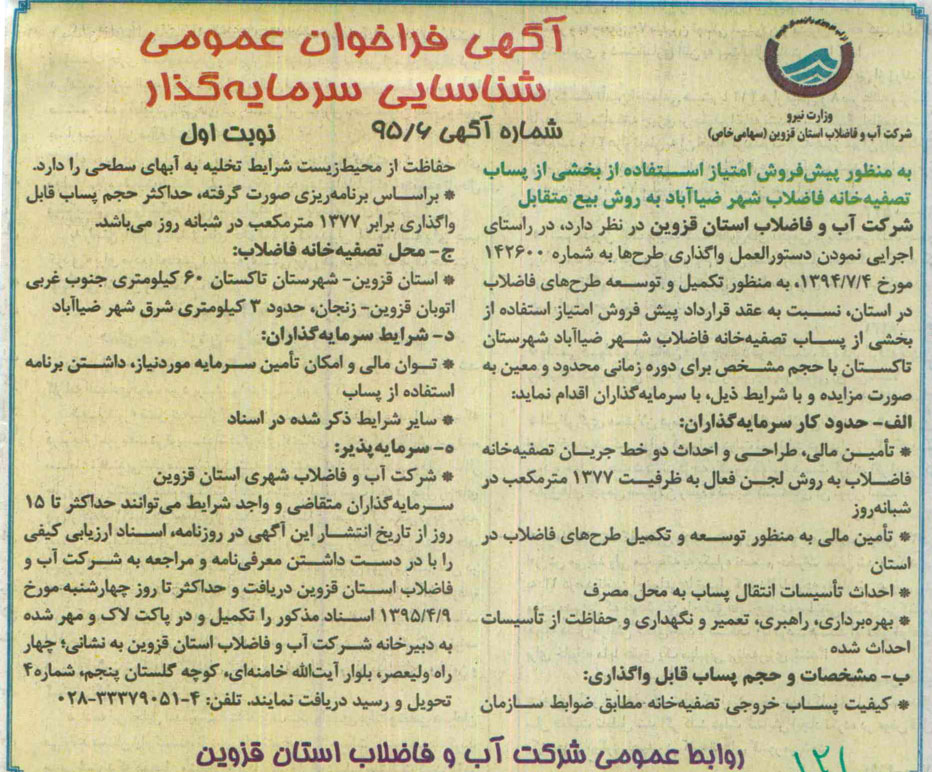 آگهی فراخوان عمومی
شناسایی سرمایه‌گذار
شماره آگهی ۹۵/۶ نوبت اول
وزارت نیرو
شرکت آب و فاضلاب استان قزوین (سهامی‌خاص)
به منظور پیش‌فروش امتیاز اســتفاده از بخشی از پساب
تصفیه‌خانه فاضلاب شهر ضیاآباد به روش بیع متقابل
شرکت آب و فاضلاب استان قزوین در نظر دارد، در راستای
اجرایی نمودن دستورالعمل واگذاری طرح‌ها به شماره ۱۴۲۶۰۰
مورخ ۱۳۹۴/۷/۴، به منظور تکمیل و توسـعه طرح‌های فاضلاب
در استان، نسبت به عقد قرارداد پیش فروش امتیاز استفاده از
بخشی از پسـاب تصفیه‌خانه فاضلاب شــهر ضیاآباد شهرستان
تاکستان با حجم مشـخص برای دوره زمانی محدود و معین به
صورت مزایده و با شرایط ذیل، با سرمایه‌گذاران اقدام نماید:
الف- حدود کار سرمایه‌گذاران:
* تأمیـن مالی، طراحـی و احداث دو خط جریـان تصفیه‌خانه
فاضـلاب به روش لجـن فعال به ظرفیـت ۱۳۷۷ مترمکعب در
شبانه‌روز
* تأمین مالی به منظور توســعه و تکمیل طرح‌های فاضلاب در
استان
* احداث تأسیسات انتقال پساب به محل مصرف
* بهره‌برداری، راهبری، تعمیر و نگهداری و حفاظت از تأسیسات
احداث شده
ب- مشخصات و حجم پساب قابل واگذاری:
* کیفیت پسـاب خروجی تصفیه‌خانه مطابق ضوابط سـازمان
حفاظت از محیط‌زیست شرایط تخلیه به آبهای سطحی را دارد.
* براسـاس برنامه‌ریزی صورت گرفته، حداکثر حجم پساب قابل
واگذاری برابر ۱۳۷۷ مترمکعب در شبانه روز می‌باشد.
ج- محل تصفیه‌خانه فاضلاب:
* استان قزوین- شهرستان تاکستان ۶۰ کیلومتری جنوب غربی
اتوبان قزوین- زنجان، حدود ۳ کیلومتری شرق شهر ضیاآباد
د- شرایط سرمایه‌گذاران:
* تــوان مالی و امکان تأمین سـرمایه موردنیاز، داشـتن برنامه
استفاده از پساب
* سایر شرایط ذکر شده در اسناد
ه- سرمایه‌پذیر:
* شرکت آب و فاضلاب شهری استان قزوین
سـرمایه‌گذاران متقاضی و واجد شرایط می‌توانند حداکثر تا ۱۵
روز از تاریخ انتشـار این آگهی در روزنامه، اسـناد ارزیابی کیفی
را با در دسـت داشـتن معرفی‌نامه و مراجعه به شـرکت آب و
فاضلاب اسـتان قزوین دریافت و حداکثر تا روز چهارشنبه مورخ
۱۳۹۵/۴/۹ اسـناد مذکور را تکمیل و در پاکت لاک و مهر شده
به دبیرخانه شـرکت آب و فاضلاب استان قزوین به نشانی؛ چهار
راه ولیعصر، بلوار آیت‌الله خامنه‌ای، کوچه گلستان پنجم، شماره ۴
تحویل و رسید دریافت نمایند. تلفن: ۴-۳۳۳۷۹۰۵۱-۰۲۸
روابط عمومی شرکت آب و فاضلاب استان قزوین
۱۲۱